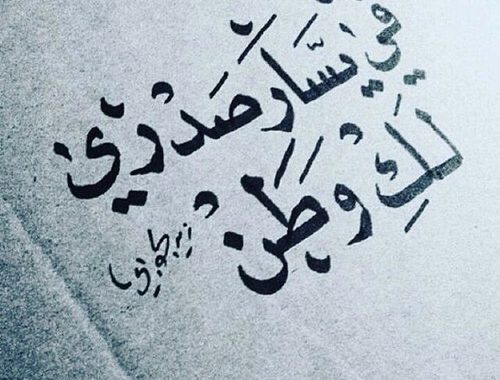 في يَسَّارَ صَدْرِيْ
لَكِ وَطَنْ